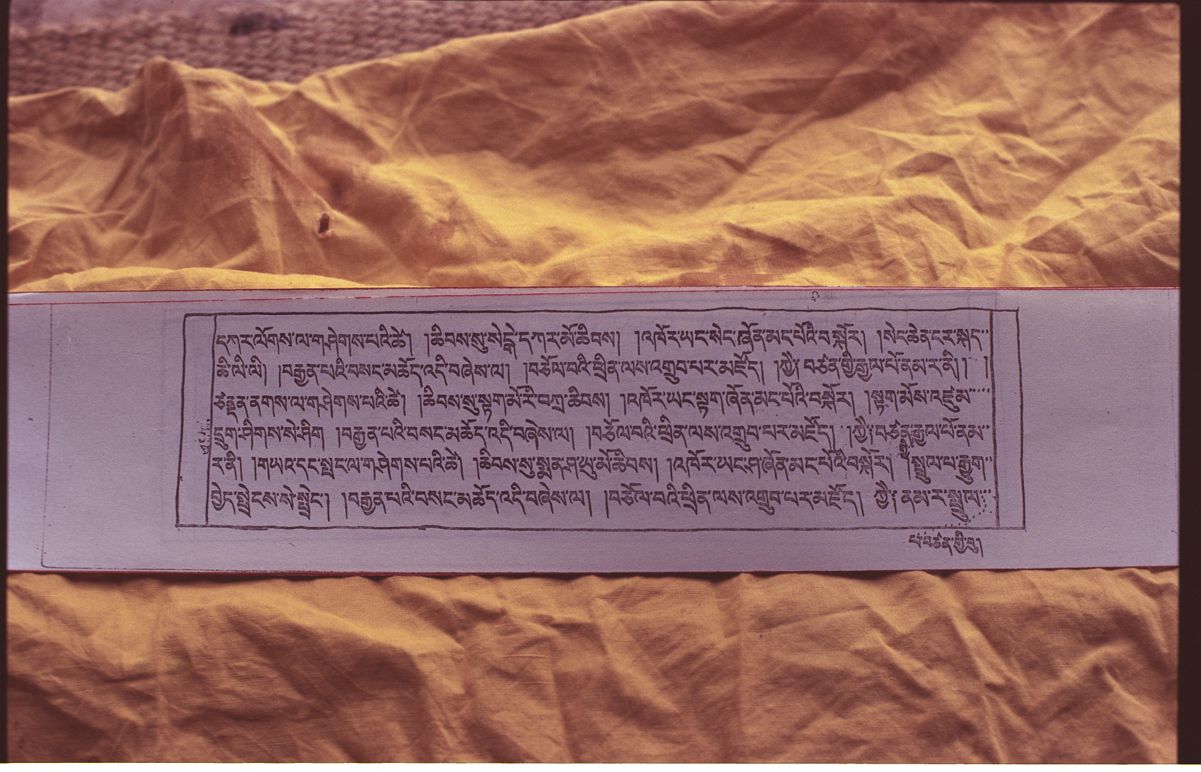 དཀར་ལོགས་ལ་གཤེགས་པའི་ཚེ། །ཆིབས་སུ་སེངྒེ་དཀར་མོ་ཆིབས། །འཁོར་ཡང་སེང་ཞོན་མང་པོའི་བསྐོར། །སེང་ཆེན་ངར་སྐད་
ཆི་ལི་ལི། །བརྒྱན་པའི་བསང་མཆོད་འདི་བཞེས་ལ། །བཅོལ་བའི་ཕྲིན་ལས་འགྲུབ་པར་མཛོད། །ཀྱཻ། བཙན་གྱི་རྒྱལ་པོ་ནམ་ར་ནི། །
ཙནྡན་ནགས་ལ་གཤེགས་པའི་ཚེ། །ཆིབས་སུ་སྟག་མོ་རི་བཀྲ་ཆིབས། །འཁོར་ཡང་སྟག་ཞོན་མང་པོའི་བསྐོར། །སྟག་མོས་འཛུམ་
དྲུག་ཤིགས་སེ་ཤིག །བརྒྱན་པའི་བསང་མཆོད་འདི་བཞེས་ལ། །བཅོལ་བའི་ཕྲིན་ལས་འགྲུབ་པར་མཛོད། །ཀྱཻ། བཙན་རྒྱལ་པོ་ནམ་
ར་ནི། །གཡའ་དང་སྤང་ལ་གཤེགས་པའི་ཚེ། །ཆིབས་སུ་སྨན་ཤ་ཡུ་མོ་ཆིབས། །འཁོར་ཡང་ཤ་ཞོན་མང་པོའི་བསྐོར། །སྤྲུལ་པ་རྒྱུག་
བྱེད་སྤྲེངས་སེ་སྤྲེང། །བརྒྱན་པའི་བསང་མཆོད་འདི་བཞེས་ལ། །བཅོལ་བའི་ཕྲིན་ལས་འགྲུབ་པར་མཛོད། ཀྱཻ། ནམ་ར་སྤྲུལ་
པ་བཙན་གྱི་བུ།